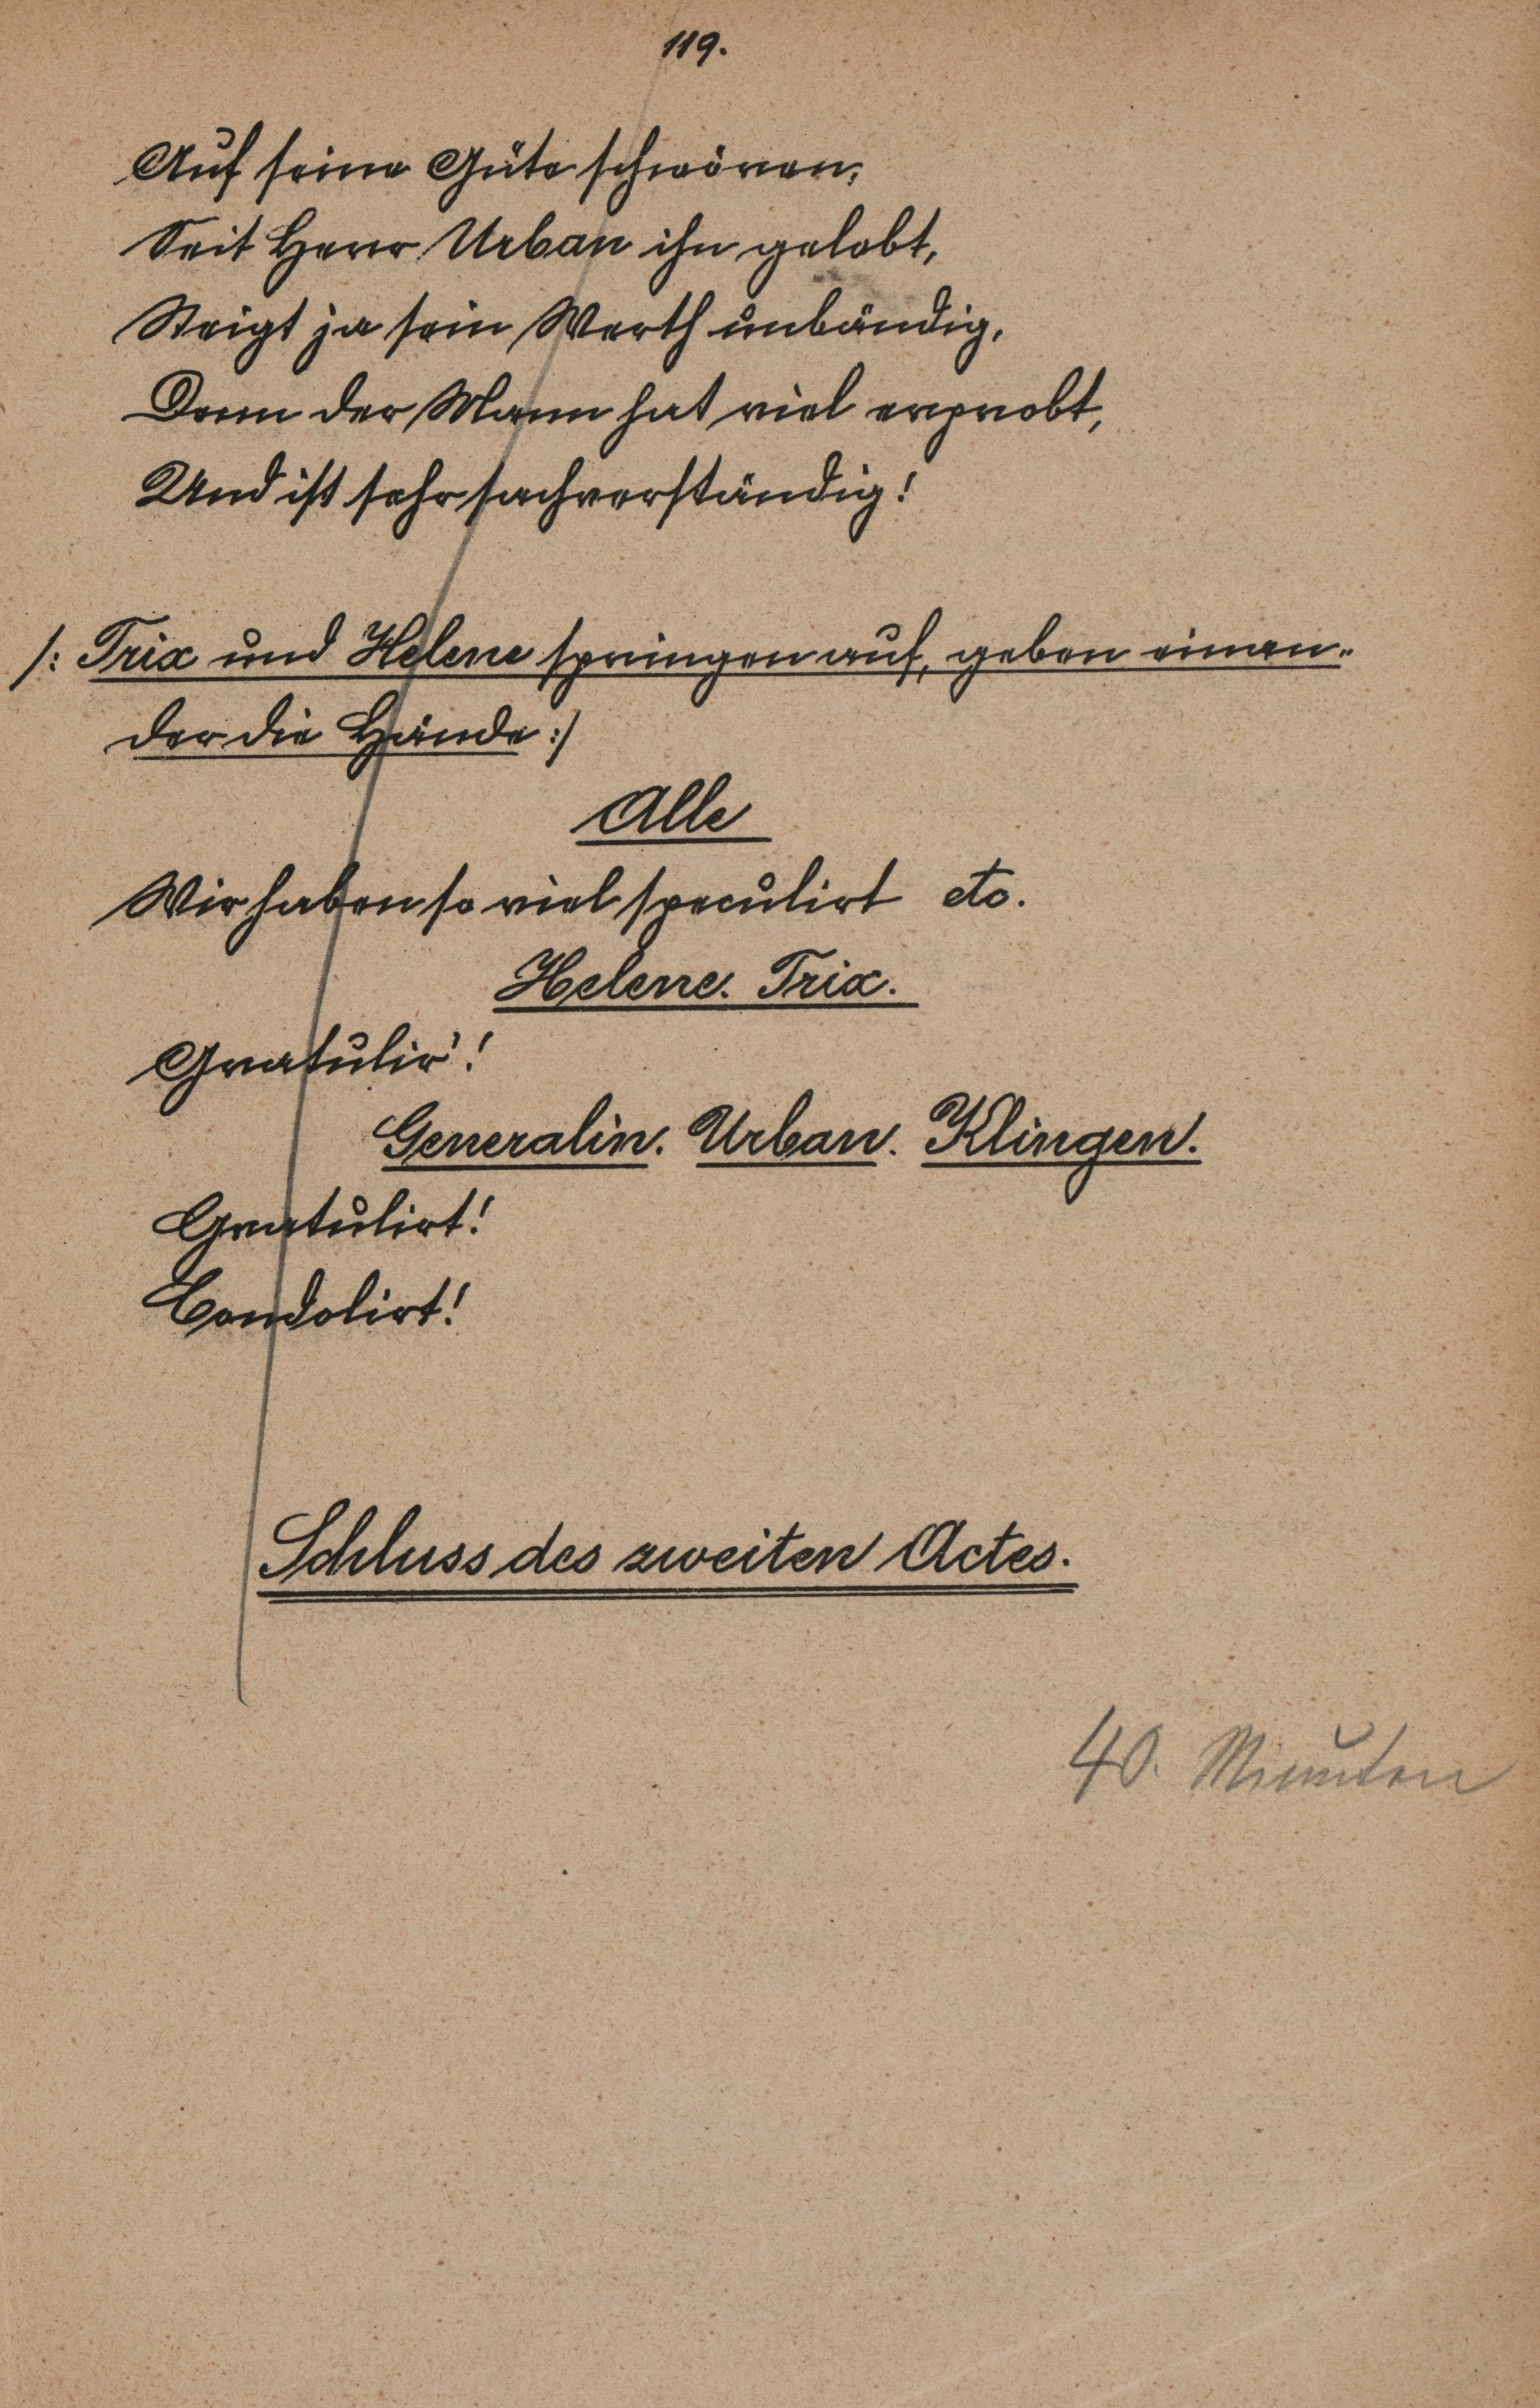 119.
Auf seine Güte schwören;
Seit Herr Urban ihn gelobt,
Steigt ja sein Werth unbändig,
Denn der Mann hat viel erprobt,
Und ist sehr sachverständig!
/: Trix und Helene springen auf, geben einan-
der die Hände :/
Alle
Wir haben so viel speculirt etc.
Helene. Trix.
Gratulir'!
Generalin. Urban. Klingen.
Gratulirt!
Condolirt!
Schluss des zweiten Actes.
40. Minuten